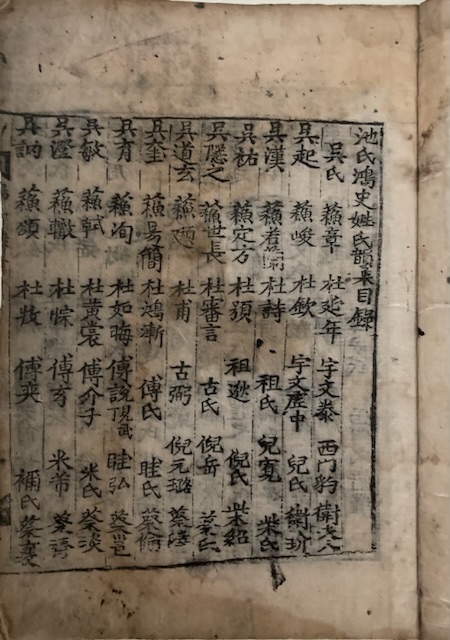 池氏鴻史姓氏韻彙目錄
吳氏 蘇章 杜延年 宇文泰 西門豹
吳起 蘇峻 杜欽 宇文虛中 兒氏 衛玠
吳漢 蘇蕙 杜詩 祖氏 兒寬 柴氏
吳祐 蘇定方 杜預 祖逖 倪氏 柴紹
吳隱之 蘇世長 杜審言 古氏 倪岳 蔡氏
吳道玄 蘇頲 杜甫 古弼 倪元璐 蔡
吳奎 蘇易簡 杜鴻漸 傅氏 眭氏 蔡倫
吳育 蘇洵 杜如晦 傅說見武丁 眭弘 蔡邕
吳敏 蘇軾 杜黃裳 傅介子 米氏 蔡琰
吳澄 蘇轍 杜悰 傅 米芾 蔡
吳訥 蘇頌 杜牧 傅奕 禰氏 蔡襄